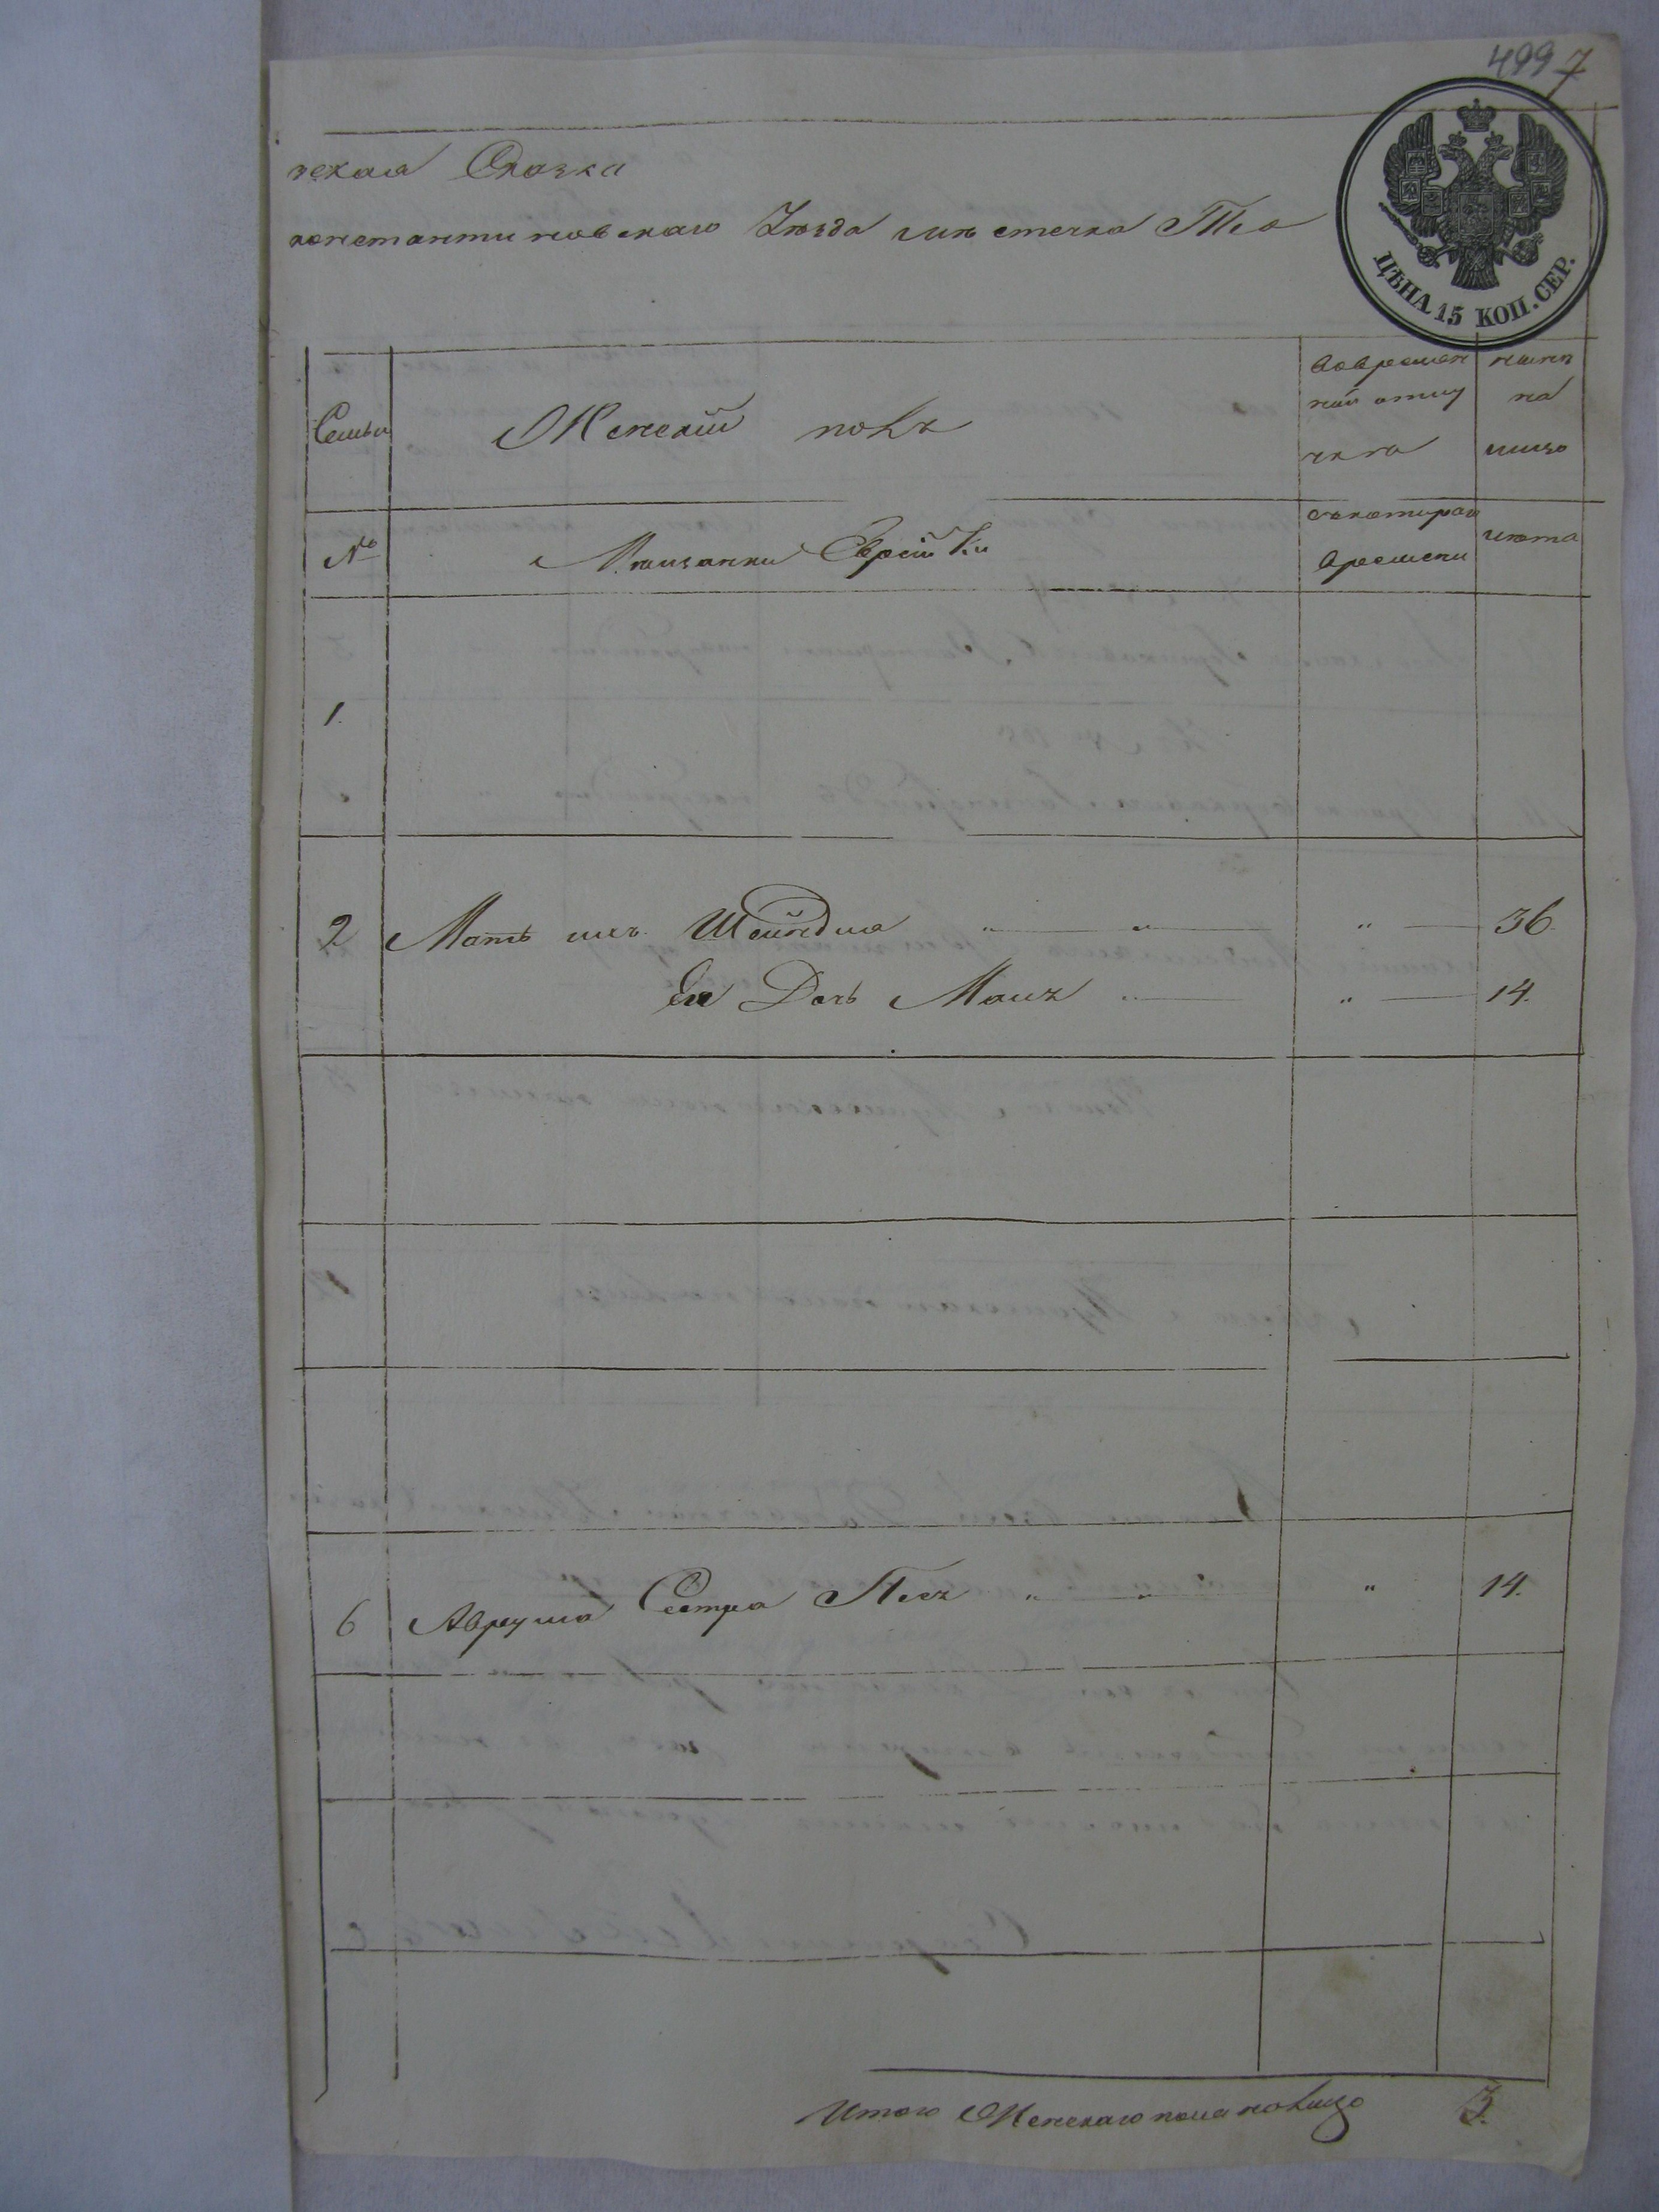 499 7
ЦѢНА 15 КОП. СЕР.
ческая Сказка
константиновскаго Уѣзда мѣстечка Тео
Семьи
Женскій полъ
Вовремен
ной отлу
чкѣ
нынѣ
на
лицо
№
Мѣщанки Еврейки
съкотораго
времени
лѣта
1.
2 Мать ихъ Шейндля " " " 36.
Ея Дочь Маих " " 14.
6 Аврума Сестра Песя " " " 14.
Итого Женскаго пола налицо 3.